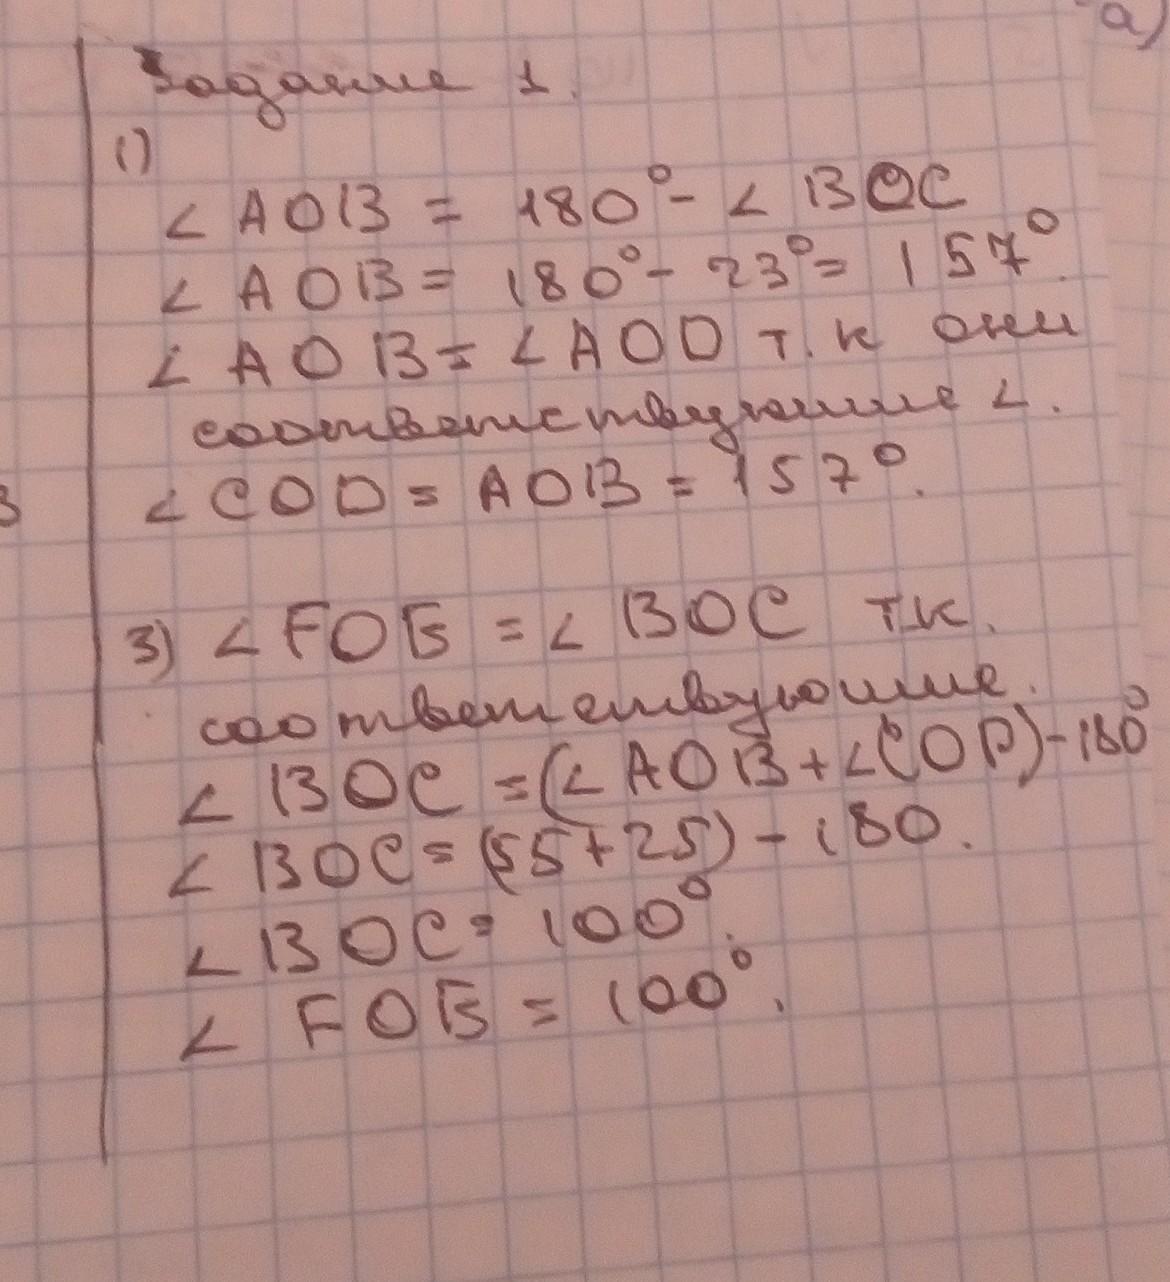 а)
Задание 1.
1)
∠ AOB = 180° - ∠ BOC
∠ AOB = 180° - 23° = 157°.
∠ AOB = ∠ AOD т.к они
соответствующие ∠.
∠ COD = AOB = 157°.
в
3) ∠ FOE = ∠ BOC т.к.
соответствующие.
∠ BOC = (∠ AOB + ∠ COD) - 180°
∠ BOC = (55 + 25) - 180.
∠ BOC = 100°.
∠ FOE = 100°.